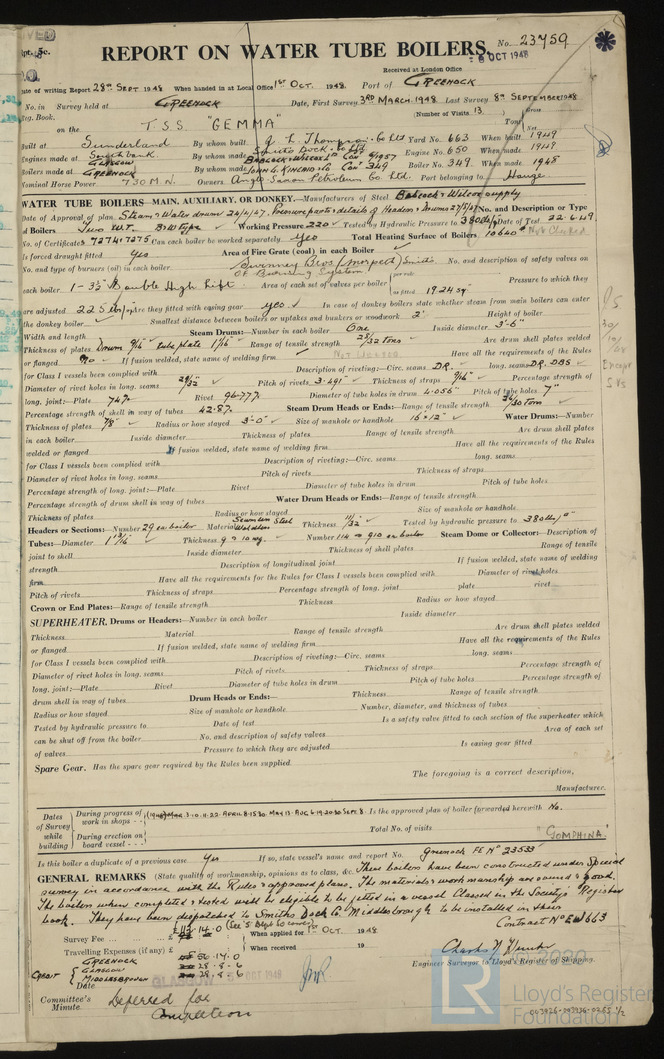 Rpt. 5c.
REPORT ON WATER TUBE BOILERS. No. 23759
Received at London Office
6 OCT 1948
Date of writing Report 28th Sept 1948 When handed in at Local Office 1st Oct. 1948 Port of GREENOCK
No. in Survey held at GREENOCK Date, First Survey 3RD MARCH 1948 Last Survey 8th SEPTEMBER 1948
Reg. Book. (Number of Visits 13)
on the T.S.S. "GEMMA" Tons Gross Net
Built at Sunderland By whom built J. L. Thompson & Co Ltd Yard No. 663 When built 1949
Engines made at Southbank By whom made Smiths Dock Co Ltd Engine No. 650 When made 1949
Boilers made at GLASGOW GREENOCK By whom made BABCOCK & WILCOX LTD JOHN G. KINCAID & Co Boiler No. 349 When made 1948
Nominal Horse Power 730 M.N. Owners Anglo Saxon Petroleum Co. Ltd. Port belonging to Hague
WATER TUBE BOILERS—MAIN, AUXILIARY, OR DONKEY.—Manufacturers of Steel Babcock & Wilcox supply
Date of Approval of plan Steam & Water drum 24/4/47. Pressure parts & details of Headers & Drums 27/5/47 No. and Description or Type
of Boilers Two W.T. B&W Type Working Pressure 220 Tested by Hydraulic Pressure to 380 Date of Test 22.6.49
No. of Certificate 7274 & 7275 Can each boiler be worked separately yes Total Heating Surface of Boilers 10640 Not Checked
Is forced draught fitted Yes Area of Fire Grate (coal) in each Boiler
No. and type of burners (oil) in each boiler Oil Burning System No. and description of safety valves on
each boiler 1 - 3½" Double High Lift Area of each set of valves per boiler per rule as fitted 19.24 Pressure to which they
are adjusted 225 Are they fitted with easing gear yes In case of donkey boilers state whether steam from main boilers can enter
the donkey boiler Smallest distance between boilers or uptakes and bunkers or woodwork 2' Height of boiler
Width and length Steam Drums:—Number in each boiler One Inside diameter 3'-6"
Thickness of plates Drum 9/16 tube plate 1 1/16" Range of tensile strength 28/32 tons Are drum shell plates welded
or flanged No If fusion welded, state name of welding firm Not Welded Have all the requirements of the Rules
for Class I vessels been complied with Description of riveting:—Circ. seams DR. long. seams DR. DBS
Diameter of rivet holes in long. seams 29/32" Pitch of rivets 3.491" Thickness of straps 9/16" Percentage strength of
long. joint:—Plate 74% Rivet 96.77% Diameter of tube holes in drum 4.056" Pitch of tube holes 7"
Percentage strength of shell in way of tubes 42.87. Steam Drum Heads or Ends:—Range of tensile strength 26/30 tons
Thickness of plates 7/8" Radius or how stayed 3'-0" Size of manhole or handhole 16" x 12" Water Drums:—Number
in each boiler Inside diameter Thickness of plates Range of tensile strength Are drum shell plates
welded or flanged If fusion welded, state name of welding firm Have all the requirements of the Rules
for Class I vessels been complied with Description of riveting:—Circ. seams long. seams
Diameter of rivet holes in long. seams Pitch of rivets Thickness of straps
Percentage strength of long. joint:—Plate Rivet Diameter of tube holes in drum Pitch of tube holes
Percentage strength of drum shell in way of tubes Water Drum Heads or Ends:—Range of tensile strength
Thickness of plates Radius or how stayed Size of manhole or handhole
Headers or Sections:—Number 29 per boiler Material Seamless Steel Thickness 11/32 Tested by hydraulic pressure to 380
Tubes:—Diameter 1 13/16" Thickness 9 & 10 wg. Number 114 910 per boiler Steam Dome or Collector:—Description of
joint to shell Inside diameter Thickness of shell plates Range of tensile
strength Description of longitudinal joint If fusion welded, state name of welding
firm Have all the requirements for the Rules for Class I vessels been complied with Diameter of rivet holes
Pitch of rivets Thickness of straps Percentage strength of long. joint plate rivet
Crown or End Plates:—Range of tensile strength Thickness Radius or how stayed
SUPERHEATER, Drums or Headers:—Number in each boiler Inside diameter
Thickness Material Range of tensile strength Are drum shell plates welded
or flanged If fusion welded, state name of welding firm Have all the requirements of the Rules
for Class I vessels been complied with Description of riveting:—Circ. seams long. seams
Diameter of rivet holes in long. seams Pitch of rivets Thickness of straps Percentage strength of
long. joint:—Plate Rivet Diameter of tube holes in drum Pitch of tube holes Percentage strength of
drum shell in way of tubes Drum Heads or Ends:— Thickness Range of tensile strength
Radius or how stayed Size of manhole or handhole Number, diameter, and thickness of tubes
Tested by hydraulic pressure to Date of test Is a safety valve fitted to each section of the superheater which
can be shut off from the boiler No. and description of safety valves Area of each set
of valves Pressure to which they are adjusted Is easing gear fitted
Spare Gear. Has the spare gear required by the Rules been supplied
The foregoing is a correct description,
Manufacturer.
Dates of Survey while building
During progress of work in shops - - (1948) MAR. 3.10.11.22. APRIL 8.15.30. MAY 13. AUG. 6.19.20.30. SEPT. 8. Is the approved plan of boiler forwarded herewith No.
During erection on board vessel - - - Total No. of visits
"GOMPHINA"
Is this boiler a duplicate of a previous case Yes If so, state vessel's name and report No. Greenock FE No 23533
GENERAL REMARKS (State quality of workmanship, opinions as to class, &c. These boilers have been constructed under Special
survey in accordance with the Rules & approved plans. The materials & workmanship are sound & good.
The boilers when completed & tested will be eligible to be fitted in a vessel Classed in the Society's Register
book. They have been dispatched to Smiths Dock Co Middlesbrough to be installed in their
Contract No 663
Survey Fee ... ... £ 113.14.0 When applied for 1st OCT. 1948
Travelling Expenses (if any) £ When received 19
CREDIT GREENOCK 56.14.0
GLASGOW 28.8.6
MIDDLESBROUGH 28.8.6
Engineer Surveyor to Lloyd's Register of Shipping.
GLASGOW 5 OCT 1948
Date
Committee's Minute. Deferred for Completion
© 2020
Lloyd's Register Foundation
003926-003936-0255 1/2